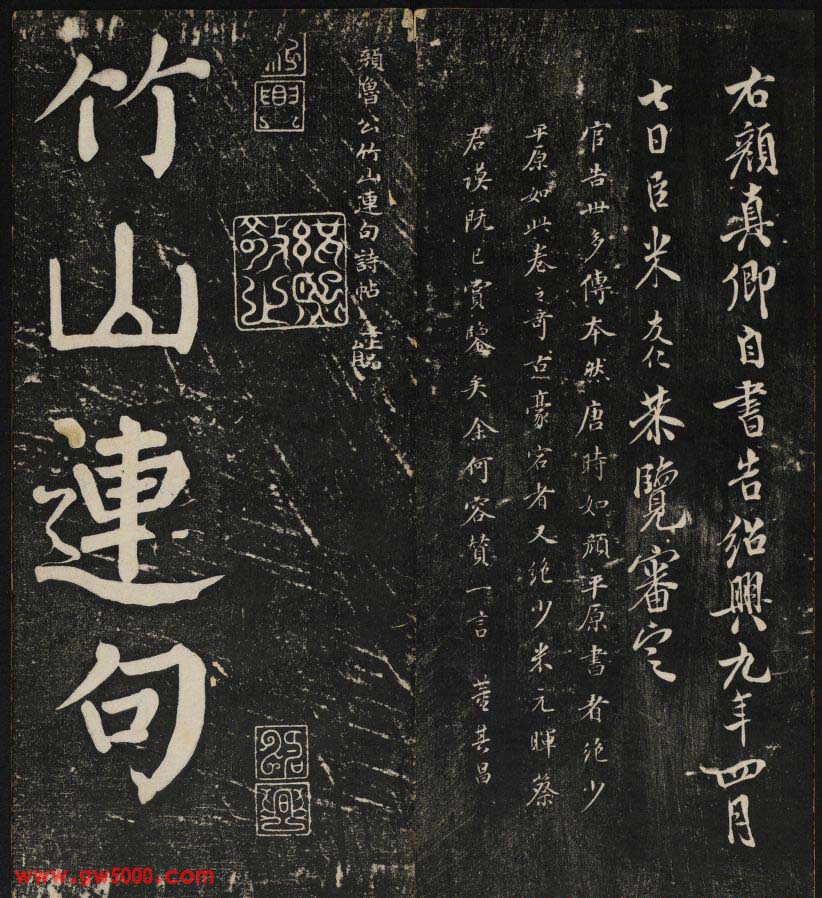 右顏真卿自書告紹興九年四月
七日臣米友仁恭覽審定
官告世多傳本然唐時如顏平原書者絶少
平原如此卷之奇古豪宕者又絶少米元暉蔡
君謨既已賞鑒矣余何容贊一言 董其昌
顏魯公竹山連句詩帖
紹興
竹山連句
www.gw5000.com